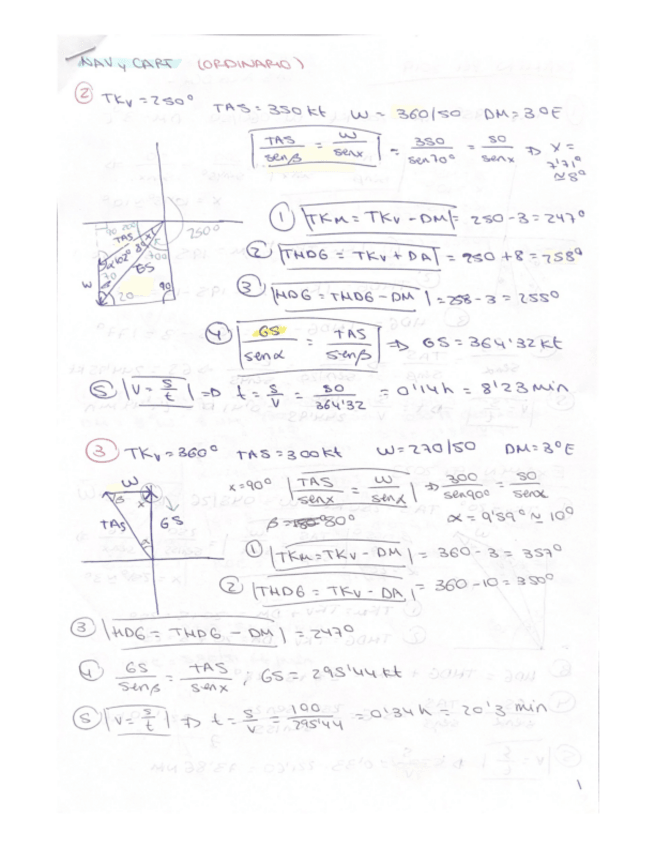 NAV y CART (ORDINARIO)
② TKv = 250º TAS = 350 kt W = 360/50 DM = 3ºE
TAS/senβ = W/senx = 350/sen70º = 50/senx ⇒ x = 7'71º ≃ 8º
250º
TAS
GS
W
20
90
70
① TKM = TKv - DM = 250 - 3 = 247º
② THDG = TKv + DA = 250 + 8 = 258º
③ HDG = THDG - DM = 258 - 3 = 255º
④ GS/senα = TAS/senβ ⇒ GS = 364'32 kt
⑤ V = s/t ⇒ t = s/v = 50/364'32 = 0'14 h = 8'23 min
③ TKv = 360º TAS = 300 kt W = 270/50 DM = 3ºE
W
TAS
GS
x = 90º TAS/senx = W/senα ⇒ 300/sen90º = 50/senα
β = 80º α = 9'59º ≃ 10º
① TKM = TKv - DM = 360 - 3 = 357º
② THDG = TKv - DA = 360 - 10 = 350º
③ HDG = THDG - DM = 247º
④ GS/senβ = TAS/senx, GS = 295'44 kt
⑤ V = s/t ⇒ t = s/v = 100/295'44 = 0'34 h = 20'3 min
1